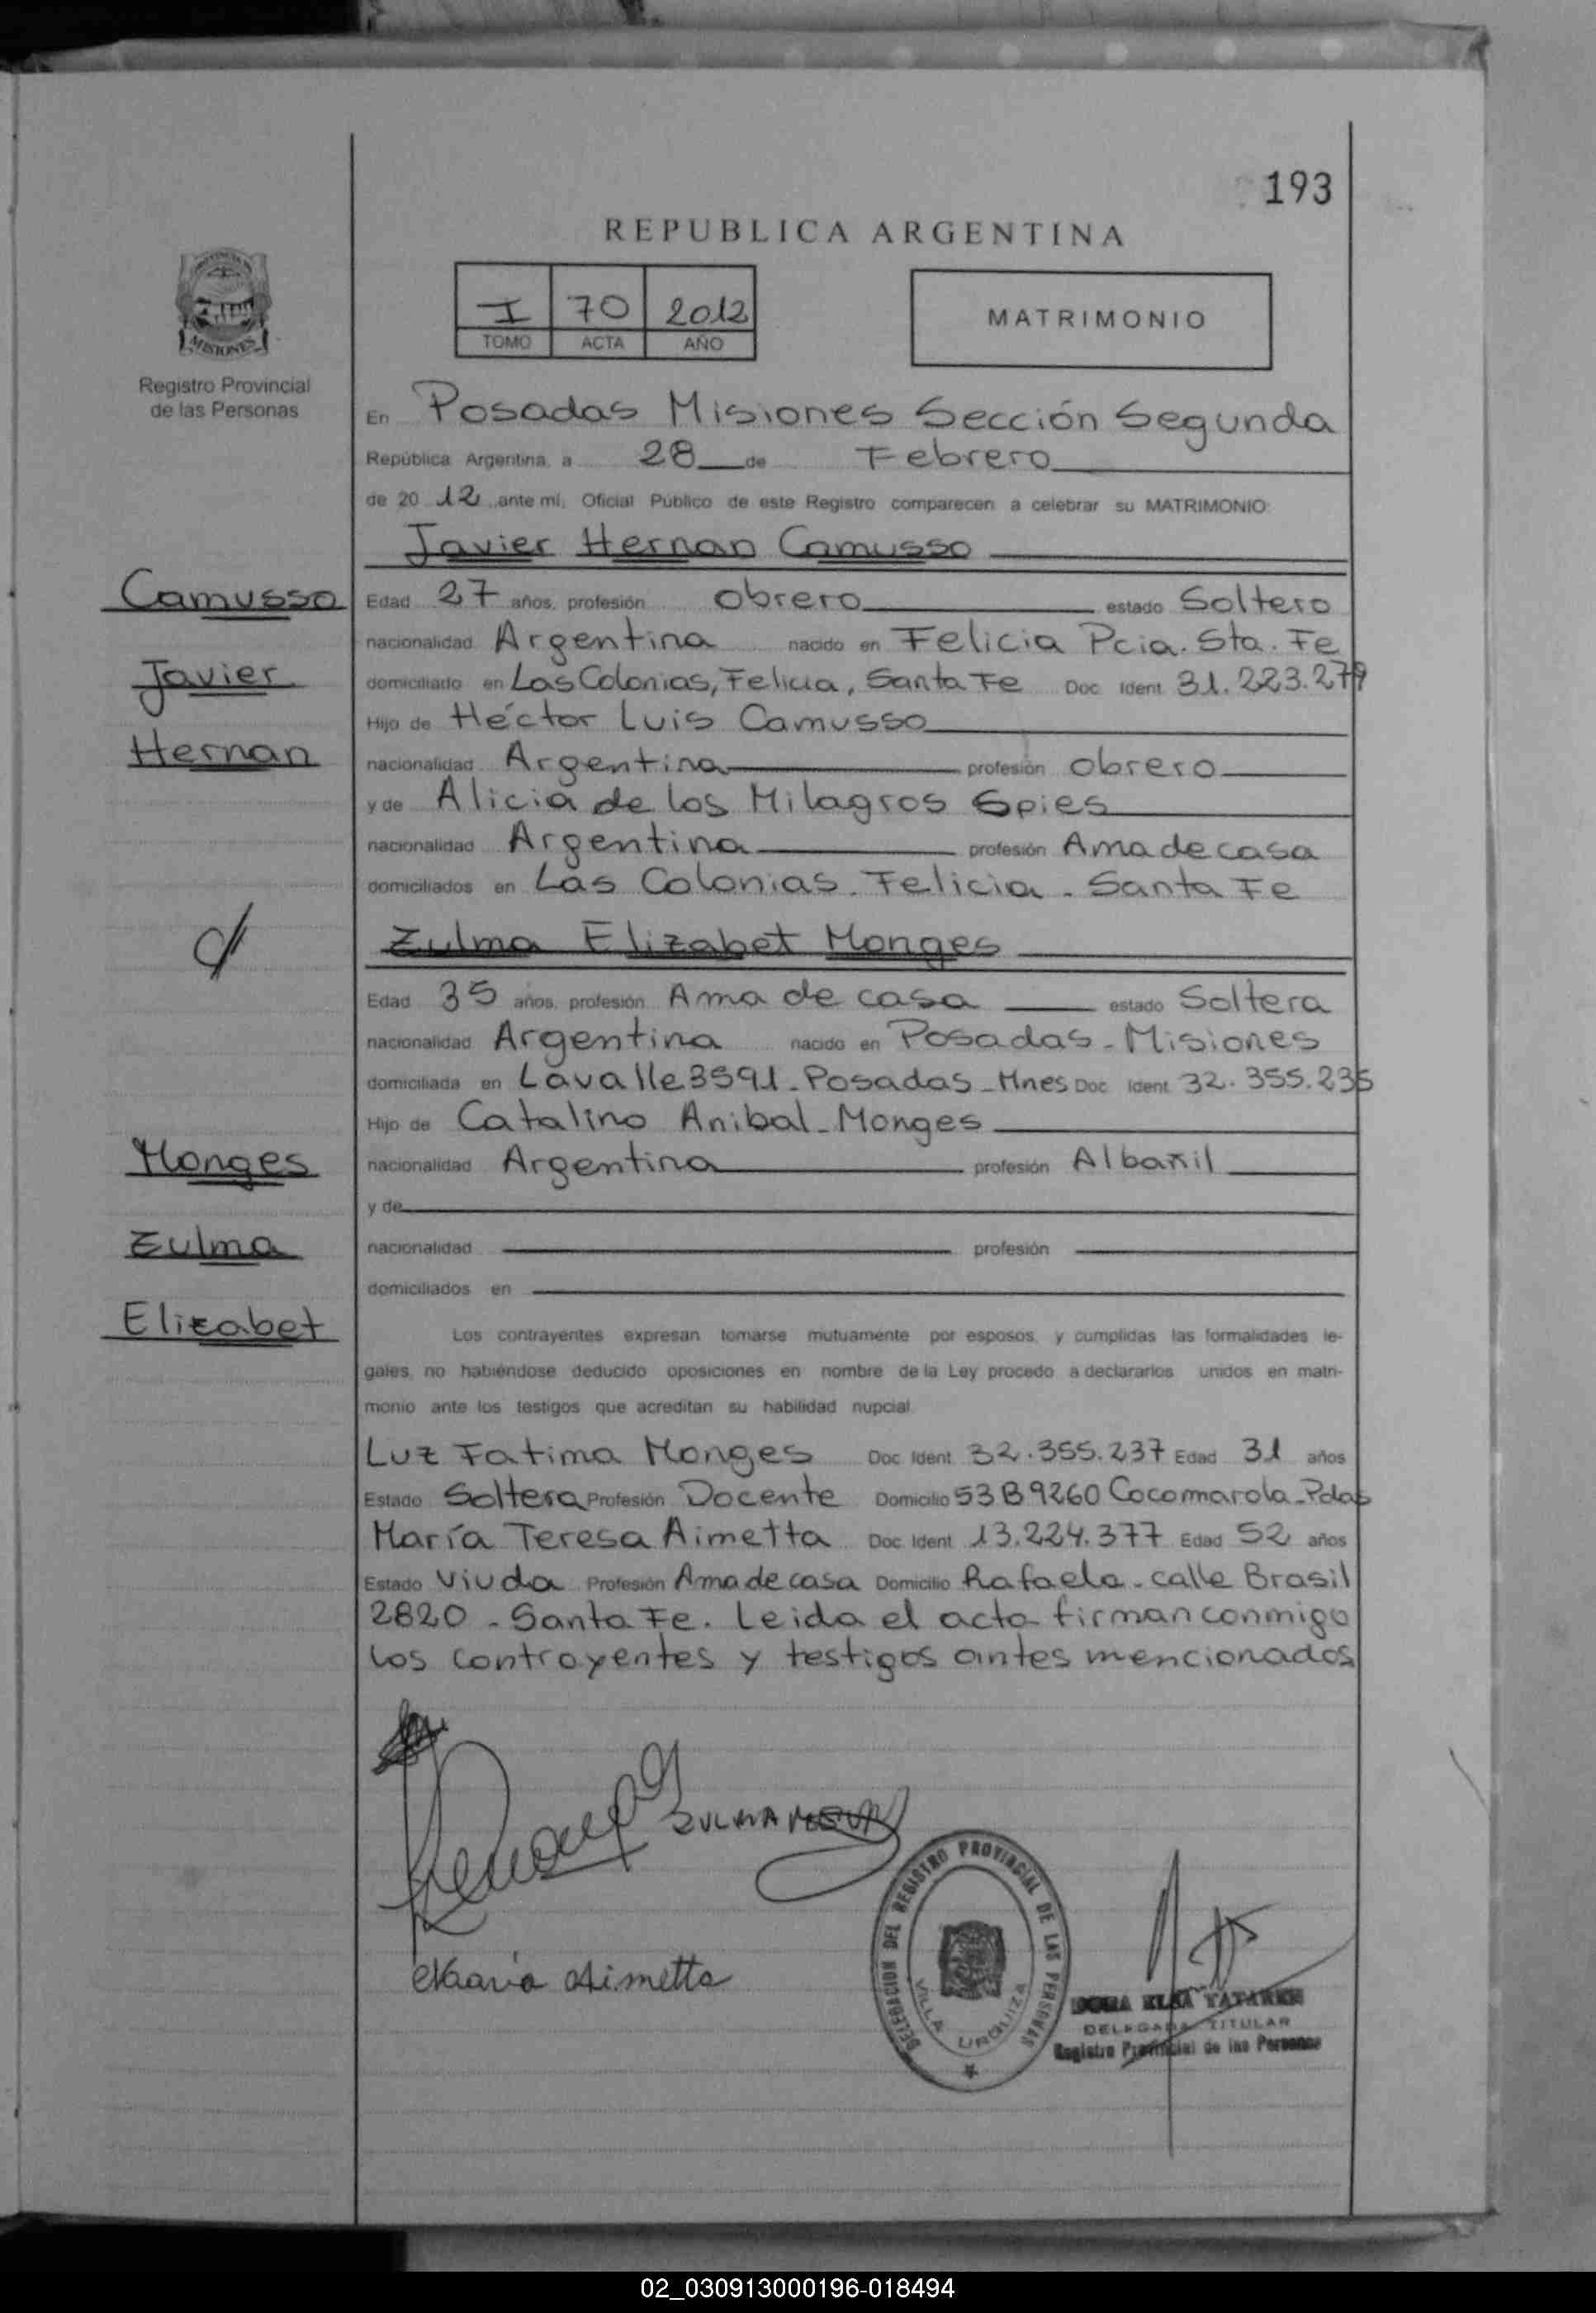 193
REPUBLICA ARGENTINA
I 70 2012
TOMO ACTA AÑO
MATRIMONIO
MISIONES
Registro Provincial
de las Personas
En Posadas Misiones Sección Segunda
República Argentina, a 28 de Febrero
de 20 12 ante mí, Oficial Público de este Registro comparecen a celebrar su MATRIMONIO:
Javier Hernan Camusso
Camusso
Edad 27 años, profesión obrero estado Soltero
nacionalidad Argentina nacido en Felicia Pcia. Sta. Fe
Javier
domiciliado en Las Colonias, Felicia, Santa Fe Doc Ident 31.223.279
Hijo de Héctor Luis Camusso
Hernan
nacionalidad Argentina profesión obrero
y de Alicia de los Milagros Spies
nacionalidad Argentina profesión Ama de casa
domiciliados en Las Colonias. Felicia - Santa Fe
c/
Zulma Elizabet Monges
Edad 35 años, profesión Ama de casa estado Soltera
nacionalidad Argentina nacido en Posadas - Misiones
domiciliada en Lavalle 3591 - Posadas - Mnes Doc Ident 32.355.235
Hijo de Catalino Anibal - Monges
Monges
nacionalidad Argentina profesión Albañil
y de
Zulma
nacionalidad profesión
domiciliados en
Elizabet
Los contrayentes expresan tomarse mutuamente por esposos, y cumplidas las formalidades le-
gales, no habiéndose deducido oposiciones en nombre de la Ley procedo a declararlos unidos en matri-
monio ante los testigos que acreditan su habilidad nupcial
Luz Fatima Monges Doc Ident 32.355.237 Edad 31 años
Estado Soltera Profesión Docente Domicilio 53 B 9260 Cocomarola - Pdas
María Teresa Aimetta Doc. Ident 13.224.377 Edad 52 años
Estado Viuda Profesión Ama de casa Domicilio Rafaela - calle Brasil
2820 - Santa Fe. Leida el acta firman conmigo
los contrayentes y testigos antes mencionados
ZULMA
María Aimetta
DELEGACION DEL REGISTRO PROVINCIAL DE LAS PERSONAS
VILLA URQUIZA
DELEGADA TITULAR
Registro Provincial de las Personas
02_030913000196-018494